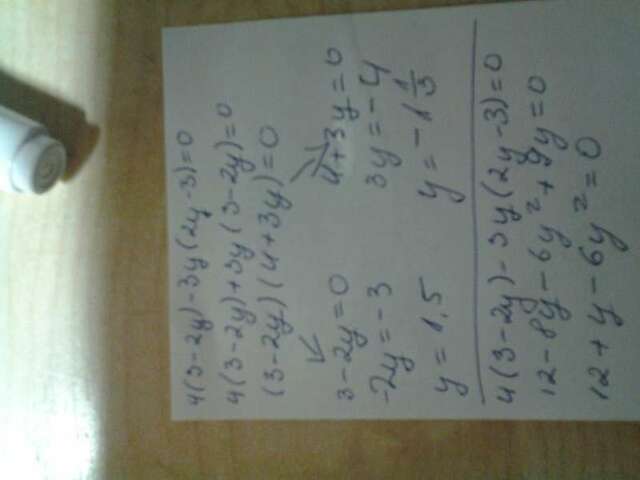 4(3-2y)-3y(2y-3)=0
4(3-2y)+3y(3-2y)=0
(3-2y)(4+3y)=0
3-2y=0 4+3y=0
-2y=-3 3y=-4
y=1,5 y=-1 1/3
4(3-2y)-3y(2y-3)=0
12-8y-6y²+9y=0
12+y-6y²=0